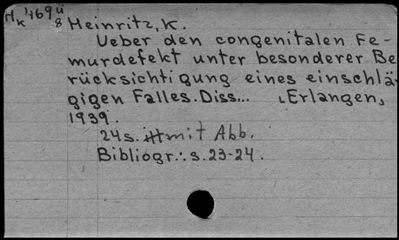 Hk '469ü8
Heinritz, K.
Ueber den congenitalen Fe-
murdefekt unter besonderer Be
rücksichtigung eines einschlä-
gigen Falles. Diss... [Erlangen]
1939.
24s. mit Abb.
Bibliogr.: s. 23-24.